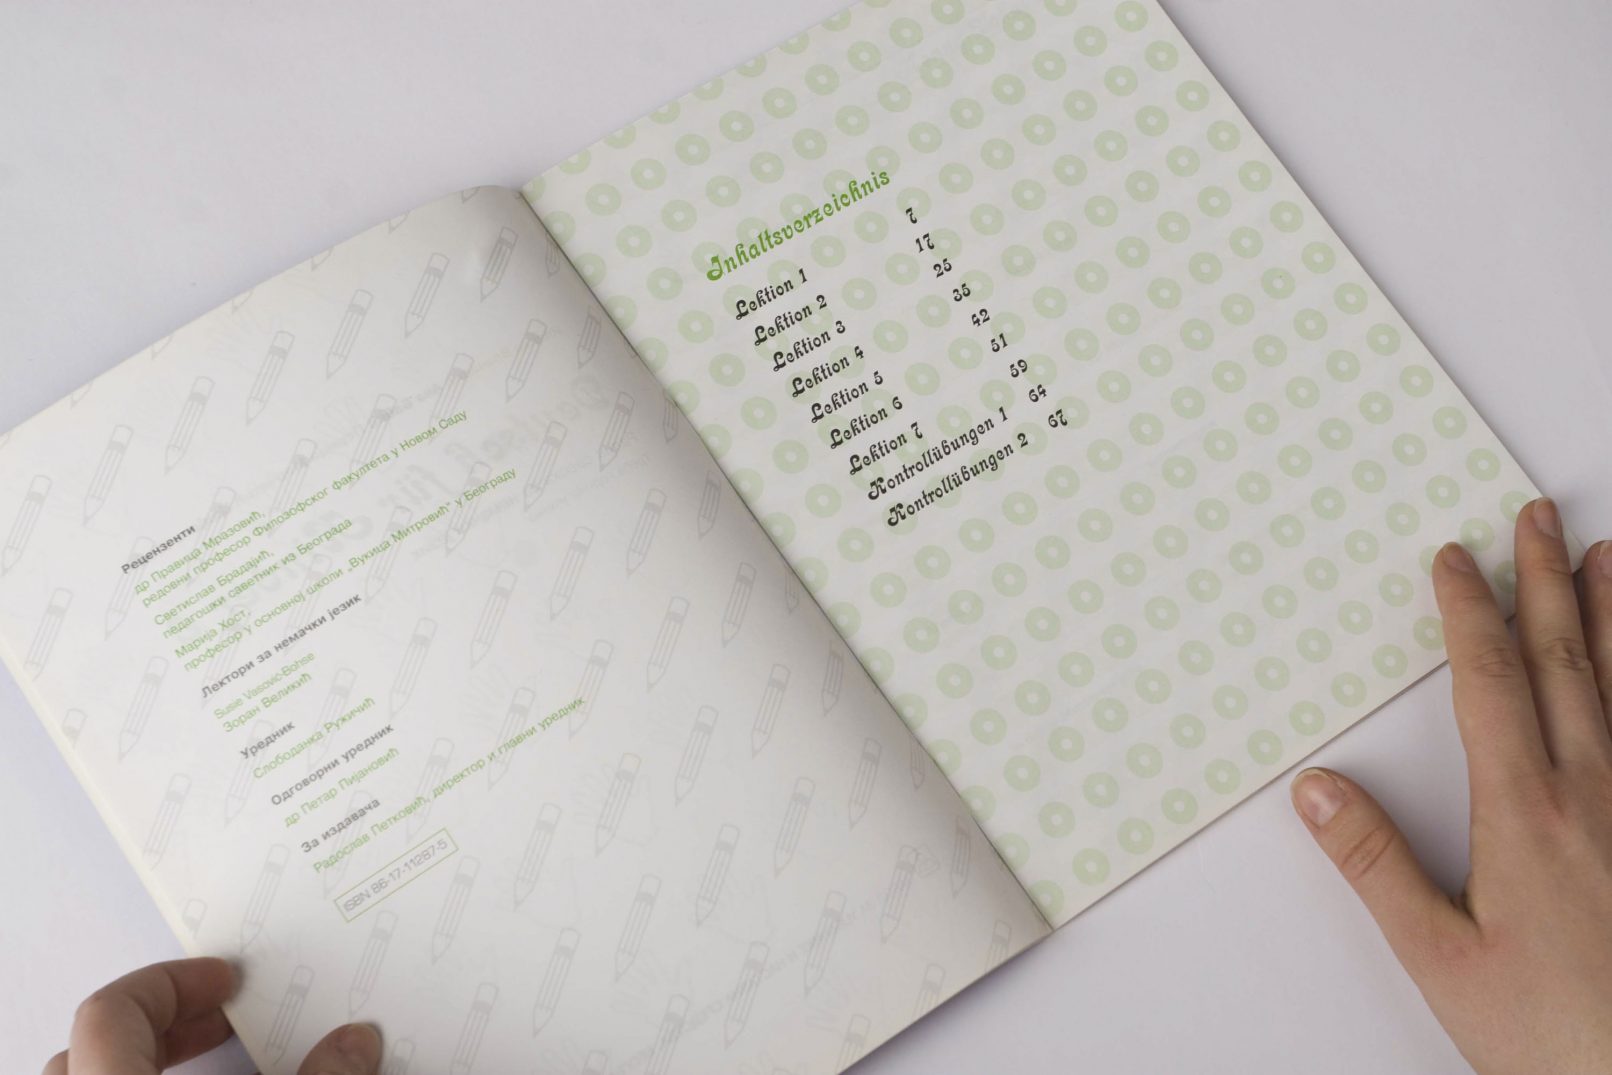 Рецензенти
др Правица Мразовић,
редовни професор Филозофског факултета у Новом Саду
Светислав Брадајић,
педагошки саветник из Београда
Марија Хост,
професор у основној школи „Вукица Митровић“ у Београду
Лектори за немачки језик
Susie Vasović-Bohse
Зоран Великић
Уредник
Слободанка Ружичић
Одговорни уредник
др Петар Пијановић
За издавача
Радослав Петковић, директор и главни уредник
ISBN 86-17-11287-5
Inhaltsverzeichnis
Lektion 1 7
Lektion 2 17
Lektion 3 25
Lektion 4 35
Lektion 5 42
Lektion 6 51
Lektion 7 59
Kontrollübungen 1 64
Kontrollübungen 2 67